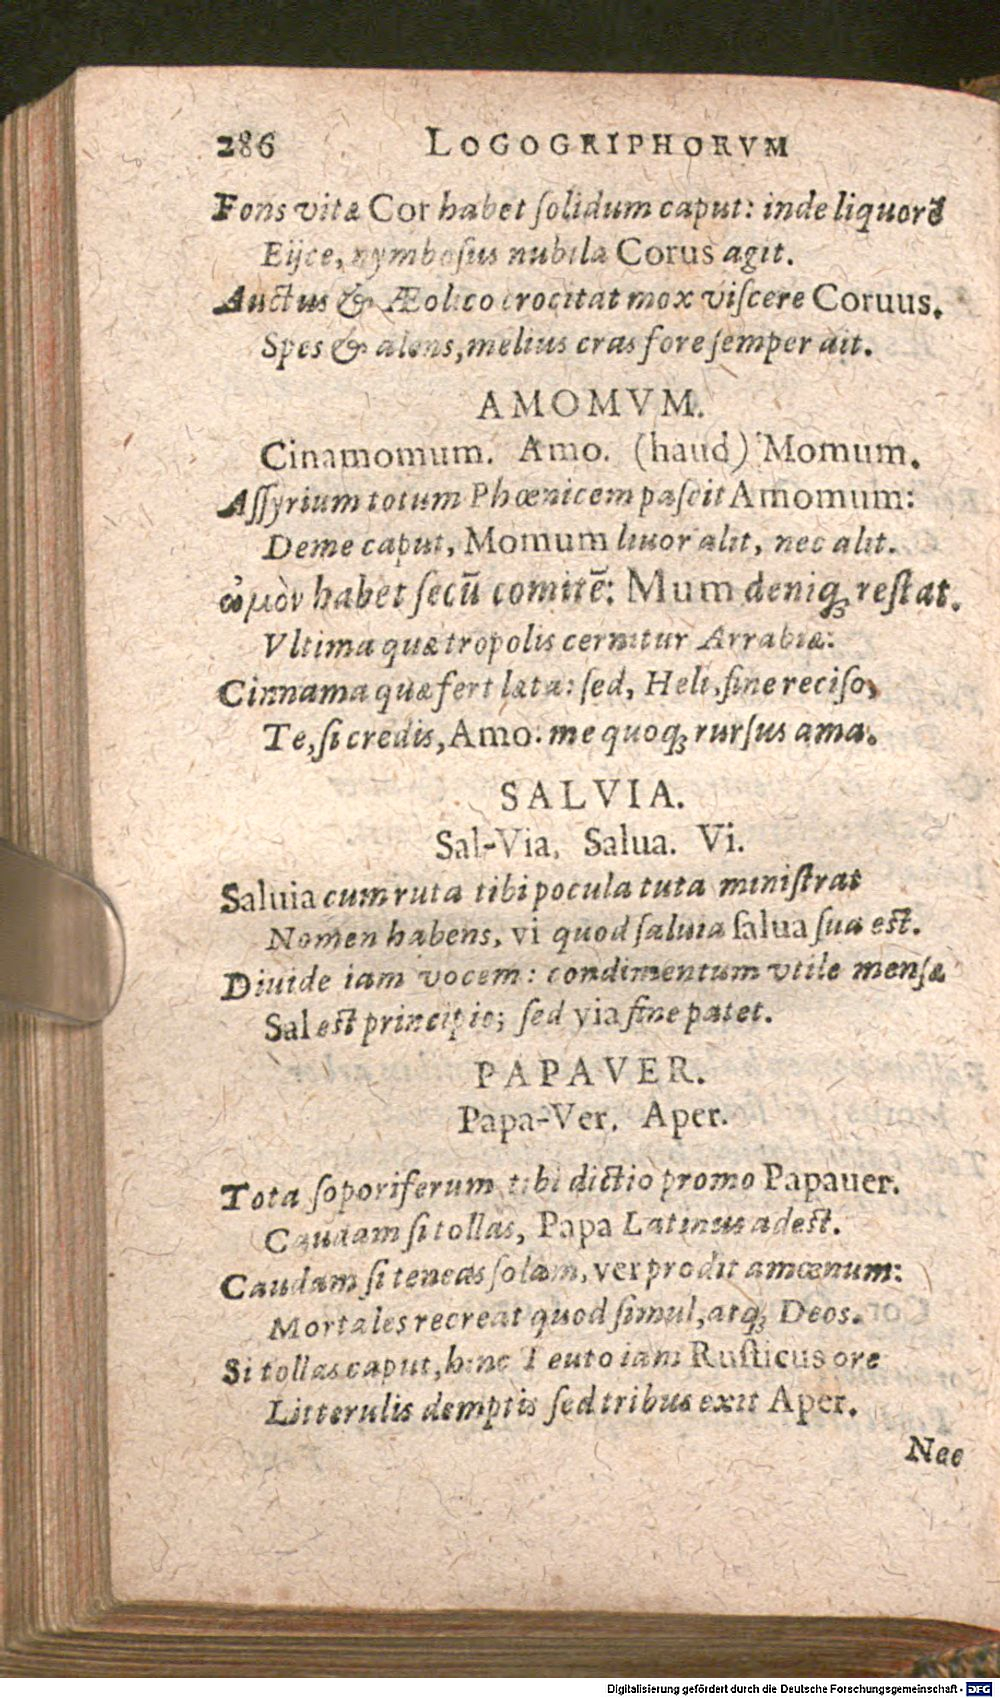 286 LOGOGRIPHORVM
Fons vitæ Cor habet ſolidum caput: inde liquorẽ
Eijce, nymboſus nubila Corus agit.
Auctus & Æolico crocitat mox viſcere Coruus.
Spes & alens, melius cras fore ſemper ait.
AMOMVM.
Cinamomum. Amo. (haud) Momum.
Aſſyrium totum Phœnicem paſcit Amomum:
Deme caput, Momum liuor alit, nec alit.
ὠμὸν habet ſecũ comitẽ: Mum deniqꝫ reſtat.
Vltima quæ tropolis cernitur Arrabiæ:
Cinnama quæ fert læta: ſed, Heli, ſine reciſo,
Te, ſi credis, Amo. me quoqꝫ rurſus ama.
SALVIA.
Sal-Via. Salua. Vi.
Saluia cum ruta tibi pocula tuta miniſtrat
Nomen habens, vi quod ſaluia ſalua ſua eſt.
Diuide iam vocem: condimentum vtile menſæ
Sal eſt principio; ſed via fine patet.
PAPAVER.
Papa-Ver. Aper.
Tota ſoporiferum tibi dictio promo Papauer.
Caudam ſi tollas, Papa Latinus adeſt.
Caudam ſi teneas ſolam, ver prodit amœnum:
Mortales recreat quod ſimul, atqꝫ Deos.
Si tollas caput, hinc Teuto iam Ruſticus ore
Litterulis demptis ſed tribus exit Aper.
Nec
Digitalisierung gefördert durch die Deutsche Forschungsgemeinschaft - DFG